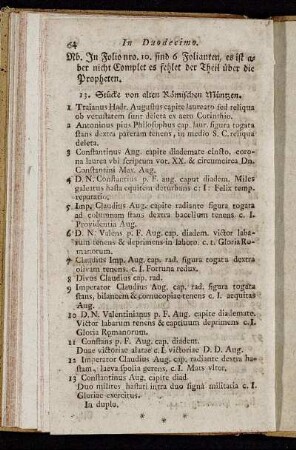 64 In Duodecimo.
Nb. In Folio nro. 10. sind 6 Folianten, es ist a-
ber nicht Complet es fehlet der Theil über die
Propheten.
13. Stücke von alten Römischen Müntzen.
1 Traianus Hadr. Augustus capite laureato sed reliqua
ob vetustatem sunt deleta ex aere Corinthio.
2 Antoninus pius Philosophus cap. laur. figura togata
stans dextra pateram tenens, in medio S. C. reliqua
deleta.
3 Constantinus Aug. capite diademate cincto, coro-
na laurea ubi scriptum vot. XX. & circumcirca Dn.
Constantini Max. Aug.
4 D. N. Constantius p. F. aug. caput diadem. Miles
galeatus hasta equitem deturbans c. I: Felix temp.
reparatio;
5 Imp. Claudius Aug. capite radiante figura togata
ad columnam stans dextra bacellum tenens c. I.
Providentia Aug.
6 D. N. Valens p. F. Aug. cap. diadem. victor laba-
rum tenens & deprimens in labore. c. I. Gloria Ro-
manorum.
7 Claudius Imp. Aug. cap. rad. figura togata dextra
olivam tenens. c. I. Fortuna redux.
8 Divus Claudius cap. rad.
9 Imperator Claudius Aug. cap. rad. figura togata
stans, bilancem & cornucopiae tenens c. I. aequitas
Aug.
10 D. N. Valentinianus p. F. Aug. capite diademate.
Victor labarum tenens & captivum deprimens c. I.
Gloria Romanorum.
11 Constans p. F. Aug. cap. diadem.
Duae victoriae alatae c. I victoriae D. D. Aug.
12 Imperator Claudius Aug. cap. radiante dextra ha-
stam, laeva spolia gerens, c. I. Mars vltor,
13 Constantinus Aug. capite diad.
Duo milites hastati intra duo signa militaria c. I.
Gloriae exercitus.
In duplo.